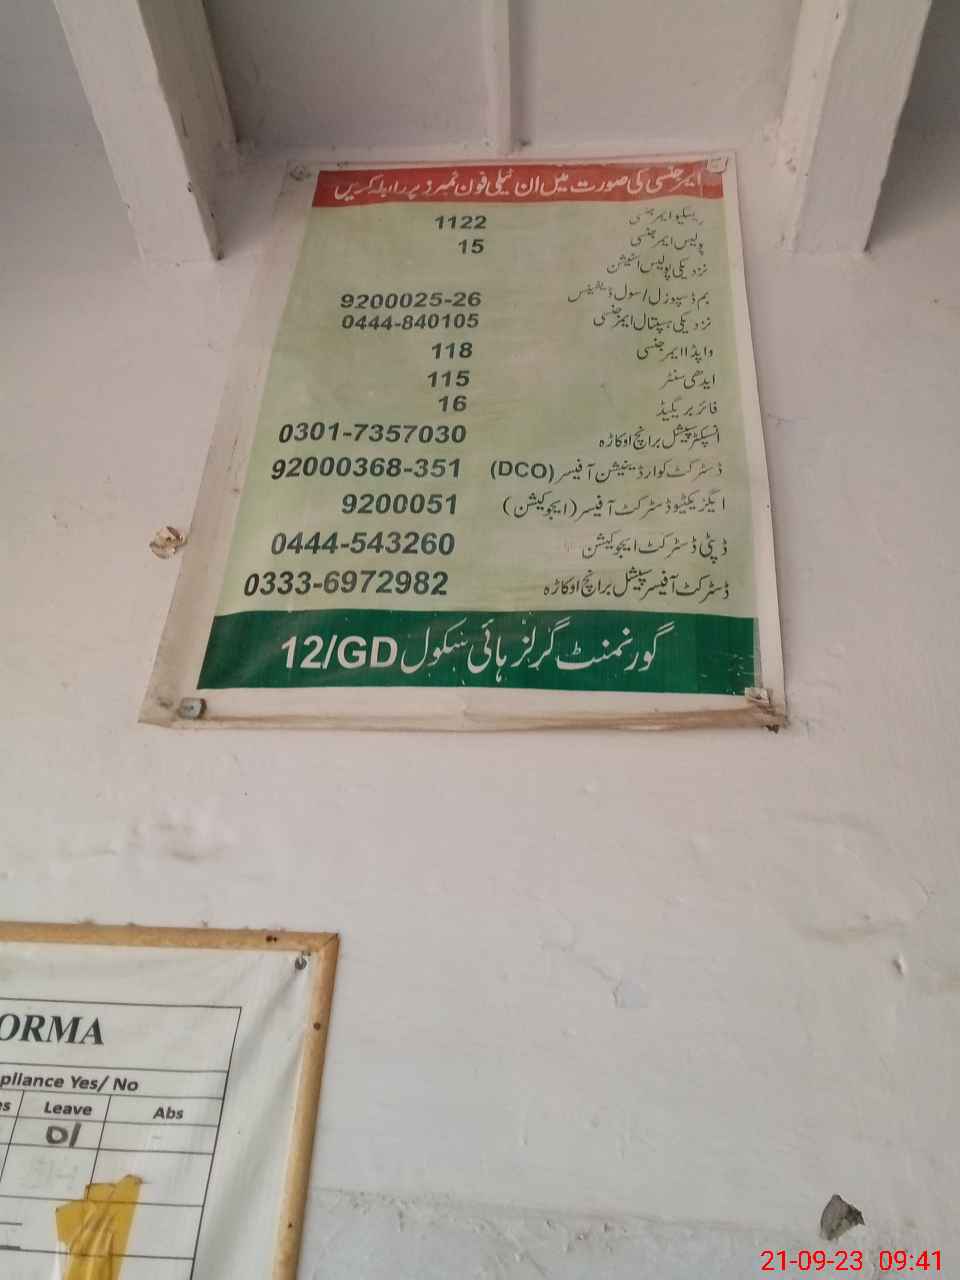 ایمرجنسی کی صورت میں ان ٹیلی فون نمبرز پر رابطہ کریں
ریسکیو ایمرجنسی 1122
پولیس ایمرجنسی 15
نزدیکی پولیس اسٹیشن
بم ڈسپوزل/سول ڈیفینس 9200025-26
نزدیکی ہسپتال ایمرجنسی 0444-840105
واپڈا ایمرجنسی 118
ایدھی سنٹر 115
فائر بریگیڈ 16
انسپکٹر سپیشل برانچ اوکاڑہ 0301-7357030
ڈسٹرکٹ کوارڈینیشن آفیسر (DCO) 92000368-351
ایگزیکٹیو ڈسٹرکٹ آفیسر (ایجوکیشن) 9200051
ڈپٹی ڈسٹرکٹ ایجوکیشن 0444-543260
ڈسٹرکٹ آفیسر سپیشل برانچ اوکاڑہ 0333-6972982
گورنمنٹ گرلز ہائی سکول 12/GD
ORMA
pliance Yes/ No
es Leave Abs
01 -
21-09-23 09:41